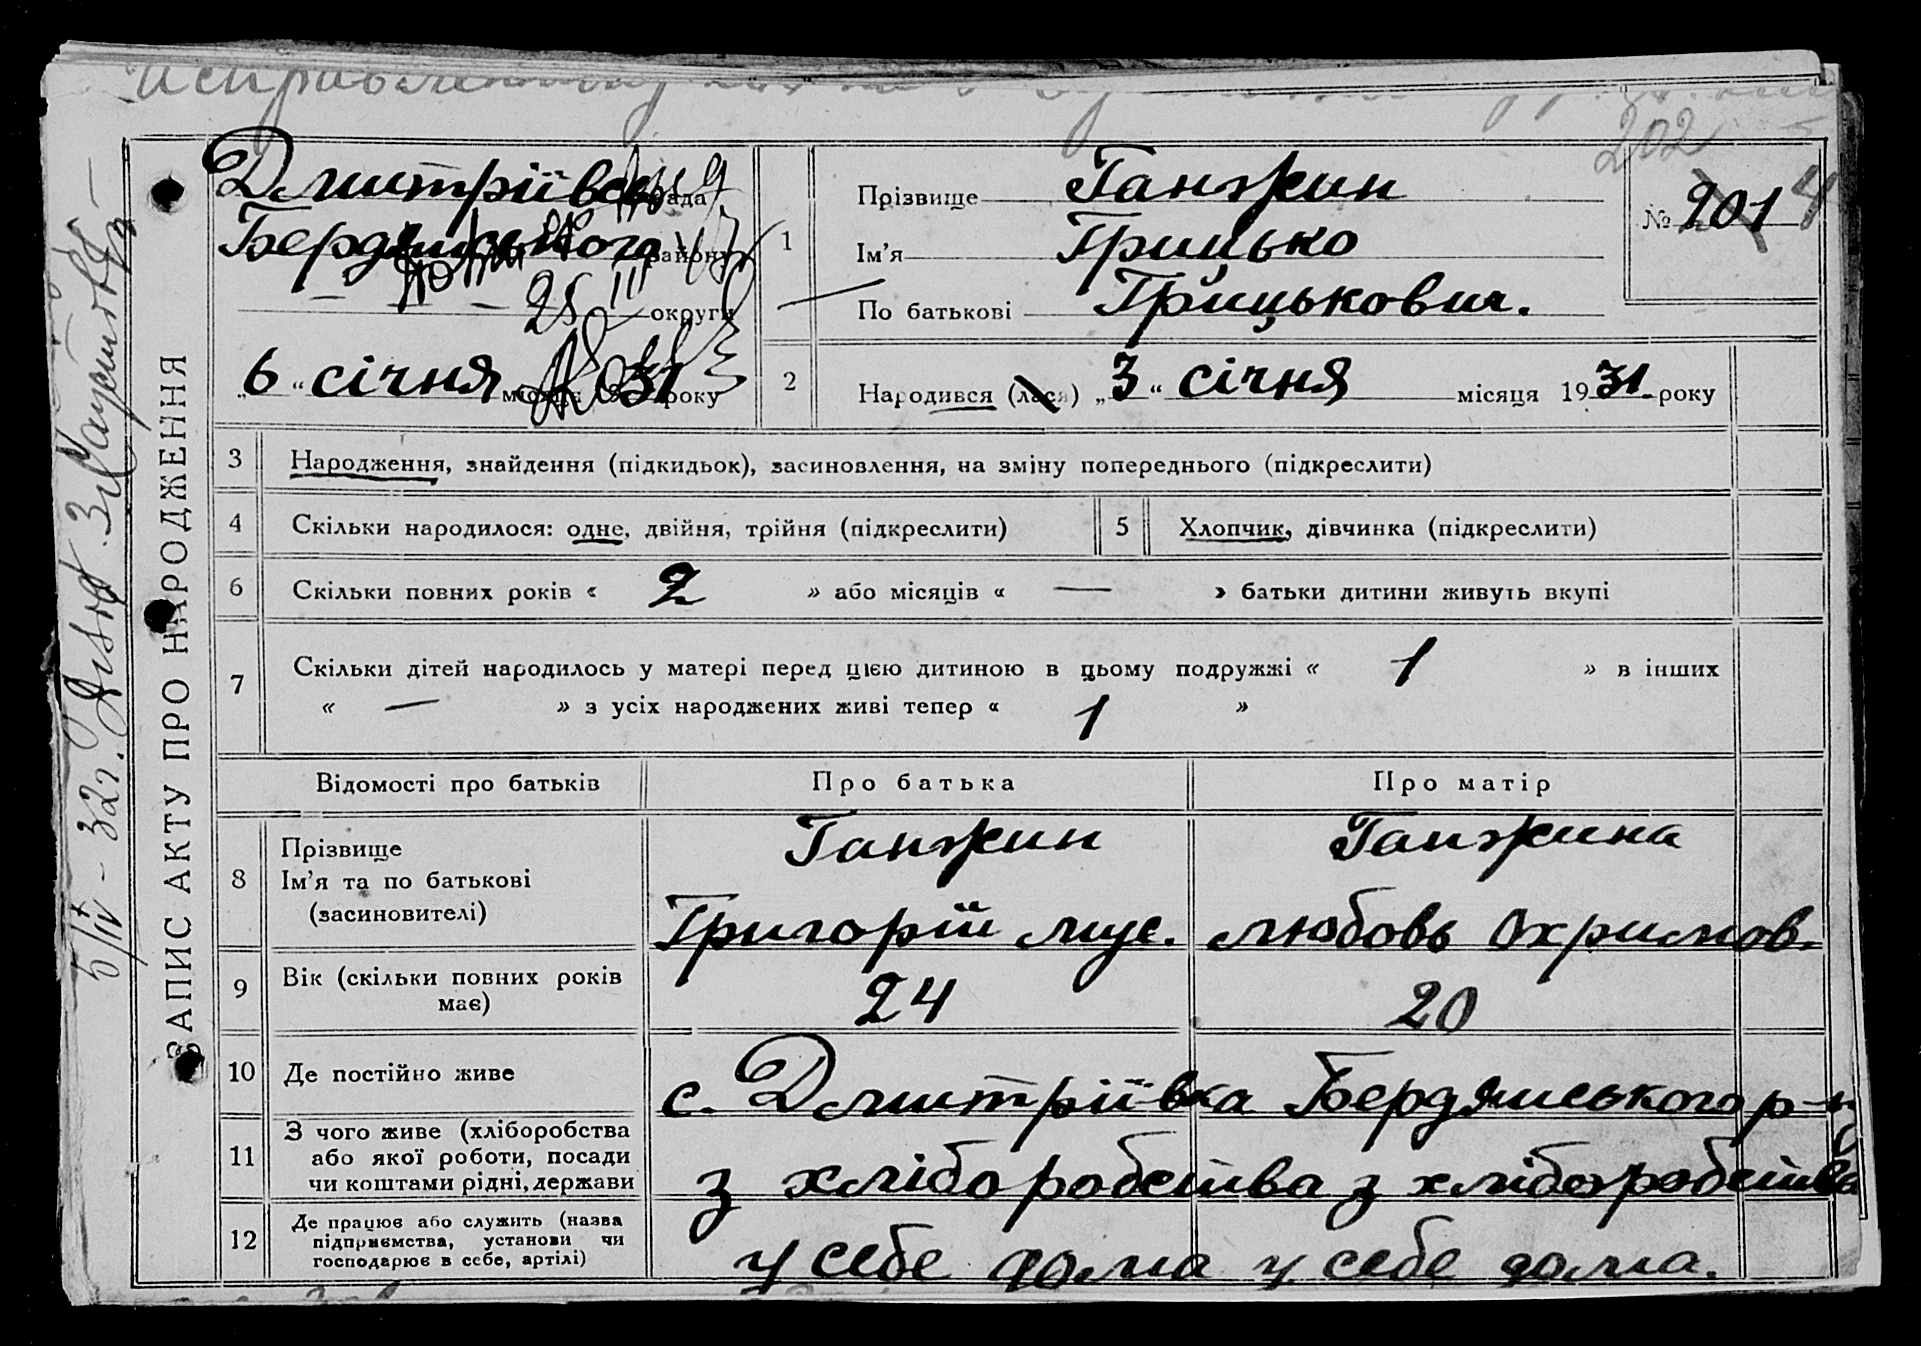 202
ЗАПИС АКТУ ПРО НАРОДЖЕННЯ
Дмитріївська рада
Бердянського району
округи
„6“ січня місяця 1931 року
1
Прізвище Ганжин
Ім’я Грицько
По батькові Грицькович.
№ 201 4
2
Народився (лася) „3“ січня місяця 1931 року
3 Народження, знайдення (підкидьок), засиновлення, на зміну попереднього (підкреслити)
4 Скільки народилося: одне, двійня, трійня (підкреслити) 5 Хлопчик, дівчинка (підкреслити)
6 Скільки повних років « 2 » або місяців « — » батьки дитини живуть вкупі
7 Скільки дітей народилось у матері перед цією дитиною в цьому подружжі « 1 » в інших
« — » з усіх народжених живі тепер « 1 »
Відомості про батьків Про батька Про матір
8 Прізвище Ганжин Ганжина
Ім’я та по батькові
(засиновителі) Григорій мус. Любовь Охримов.
9 Вік (скільки повних років
має) 24 20
10 Де постійно живе с. Дмитріївка Бердянського р-н
11 З чого живе (хліборобства
або якої роботи, посади
чи коштами рідні, держави з хліборобства з хліборобства
12 Де працює або служить (назва
підприємства, установи чи
господарює в себе, артілі) у себе дома у себе дома.